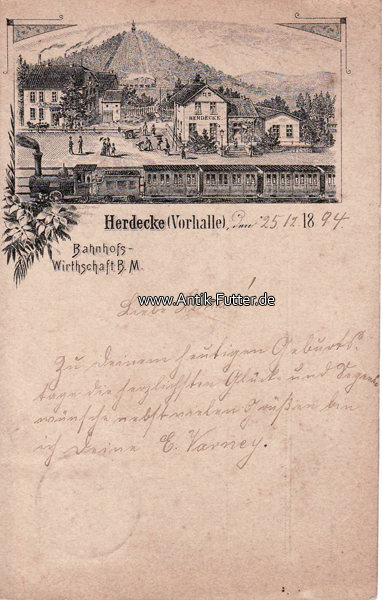 HERDECKE.
Herdecke (Vorhalle), den 25 12 1894
Bahnhofs-
Wirthschaft B. M.
www.Antik-Futter.de
Liebe !
Zu deinem heutigen Geburts
tage die herzlichsten Glück und Segens
wünsche nebst vielen Grüßen bin
ich Deine E. Varney.